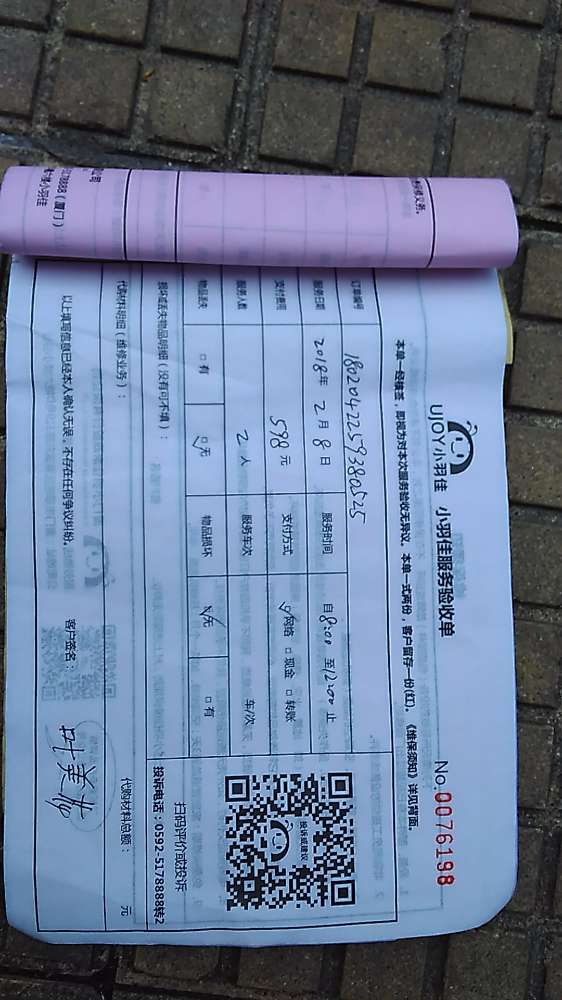 UJOY小羽佳 小羽佳服务验收单
No.0076198
本单一经核签，即视为对本次服务验收无异议。本单一式两份，客户留存一份(红)。《维保须知》详见背面。
订单编号 1802042259380525
服务日期 2018年 2月 8日 服务时间 自8:00 至12:00 止
支付费用 598元 支付方式 网络 现金 转账
服务人数 2人 服务车次 车/次
物品丢失 有 无 物品损坏 无 有
损坏或丢失物品明细（没有可不填）：
代购材料明细（维修业务）：
代购材料总额： 元
以上填写信息已经本人确认无误，不存在任何争议纠纷。
客户签名：
投诉或建议
扫码评价或投诉
投诉电话：0592-5178888转2
公司
178888（厦门）
小羽佳